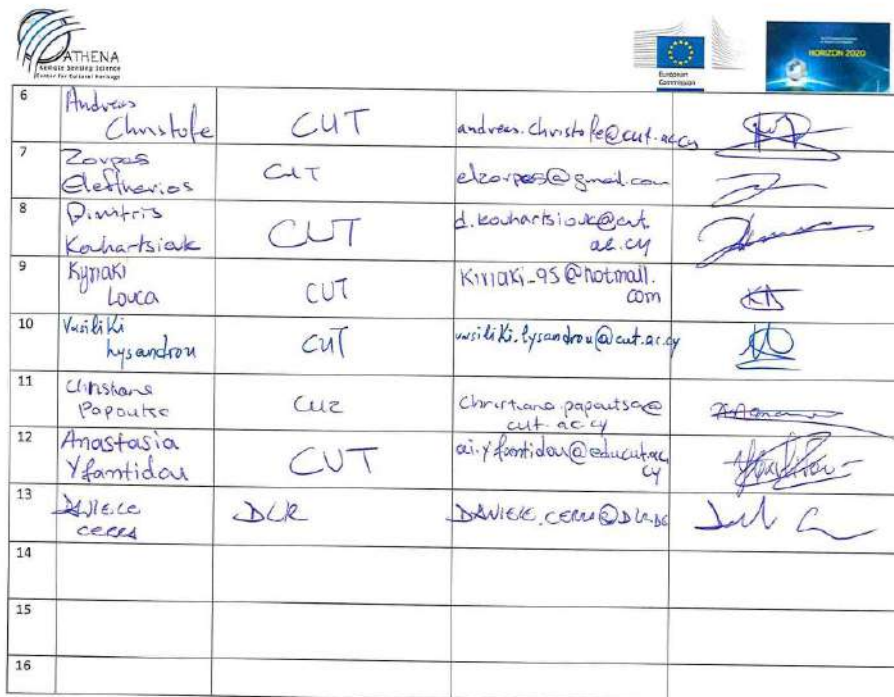 ATHENA
Remote Sensing Science
Center for Cultural Heritage
European
Commission
HORIZON 2020
6
Andreas
Christofe
CUT
andreas.christofe@cut.ac.cy
7
Zorpas
Eleftherios
CUT
elzorpas@gmail.com
8
Dimitris
Kouhartsiouk
CUT
d.kouhartsiouk@cut.
ac.cy
9
Kyriaki
Louca
CUT
Kiriaki_95@hotmail.
com
10
Vasiliki
Lysandrou
CUT
vasiliki.lysandrou@cut.ac.cy
11
Christiana
Papoutsa
CUT
Christiana.papoutsa@
cut.ac.cy
12
Anastasia
Yfantidou
CUT
ai.yfantidou@edu.cut.ac.
cy
13
DANIELE
CERRA
DLR
DANIELE.CERRA@DLR.DE
14
15
16